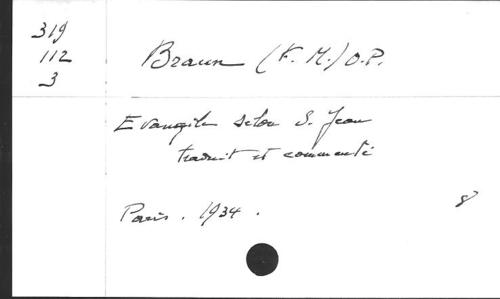 319
112
3
Braun (F. M.) O.P.
Evangile selon S. Jean
traduit et commenté
Paris. 1934.
8